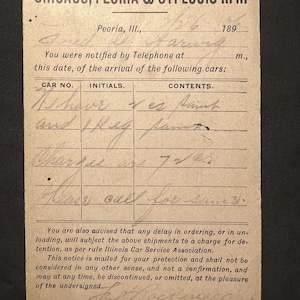 CHICAGO, PEORIA & ST. LOUIS R. R.
Peoria, Ill., 189
You were notified by Telephone at m.,
this date, of the arrival of the following cars:
CAR NO. INITIALS. CONTENTS.
We have 2 cs Paint
and 1 Keg paint
Charges are 72 c.
Please call for same.
You are also advised that any delay in ordering, or in un-
loading, will subject the above shipments to a charge for de-
tention, as per rule Illinois Car Service Association.
This notice is mailed for your protection and shall not be
considered in any other sense, and not a confirmation, and
may at any time, be discontinued, or omitted, at the pleasure
of the undersigned.